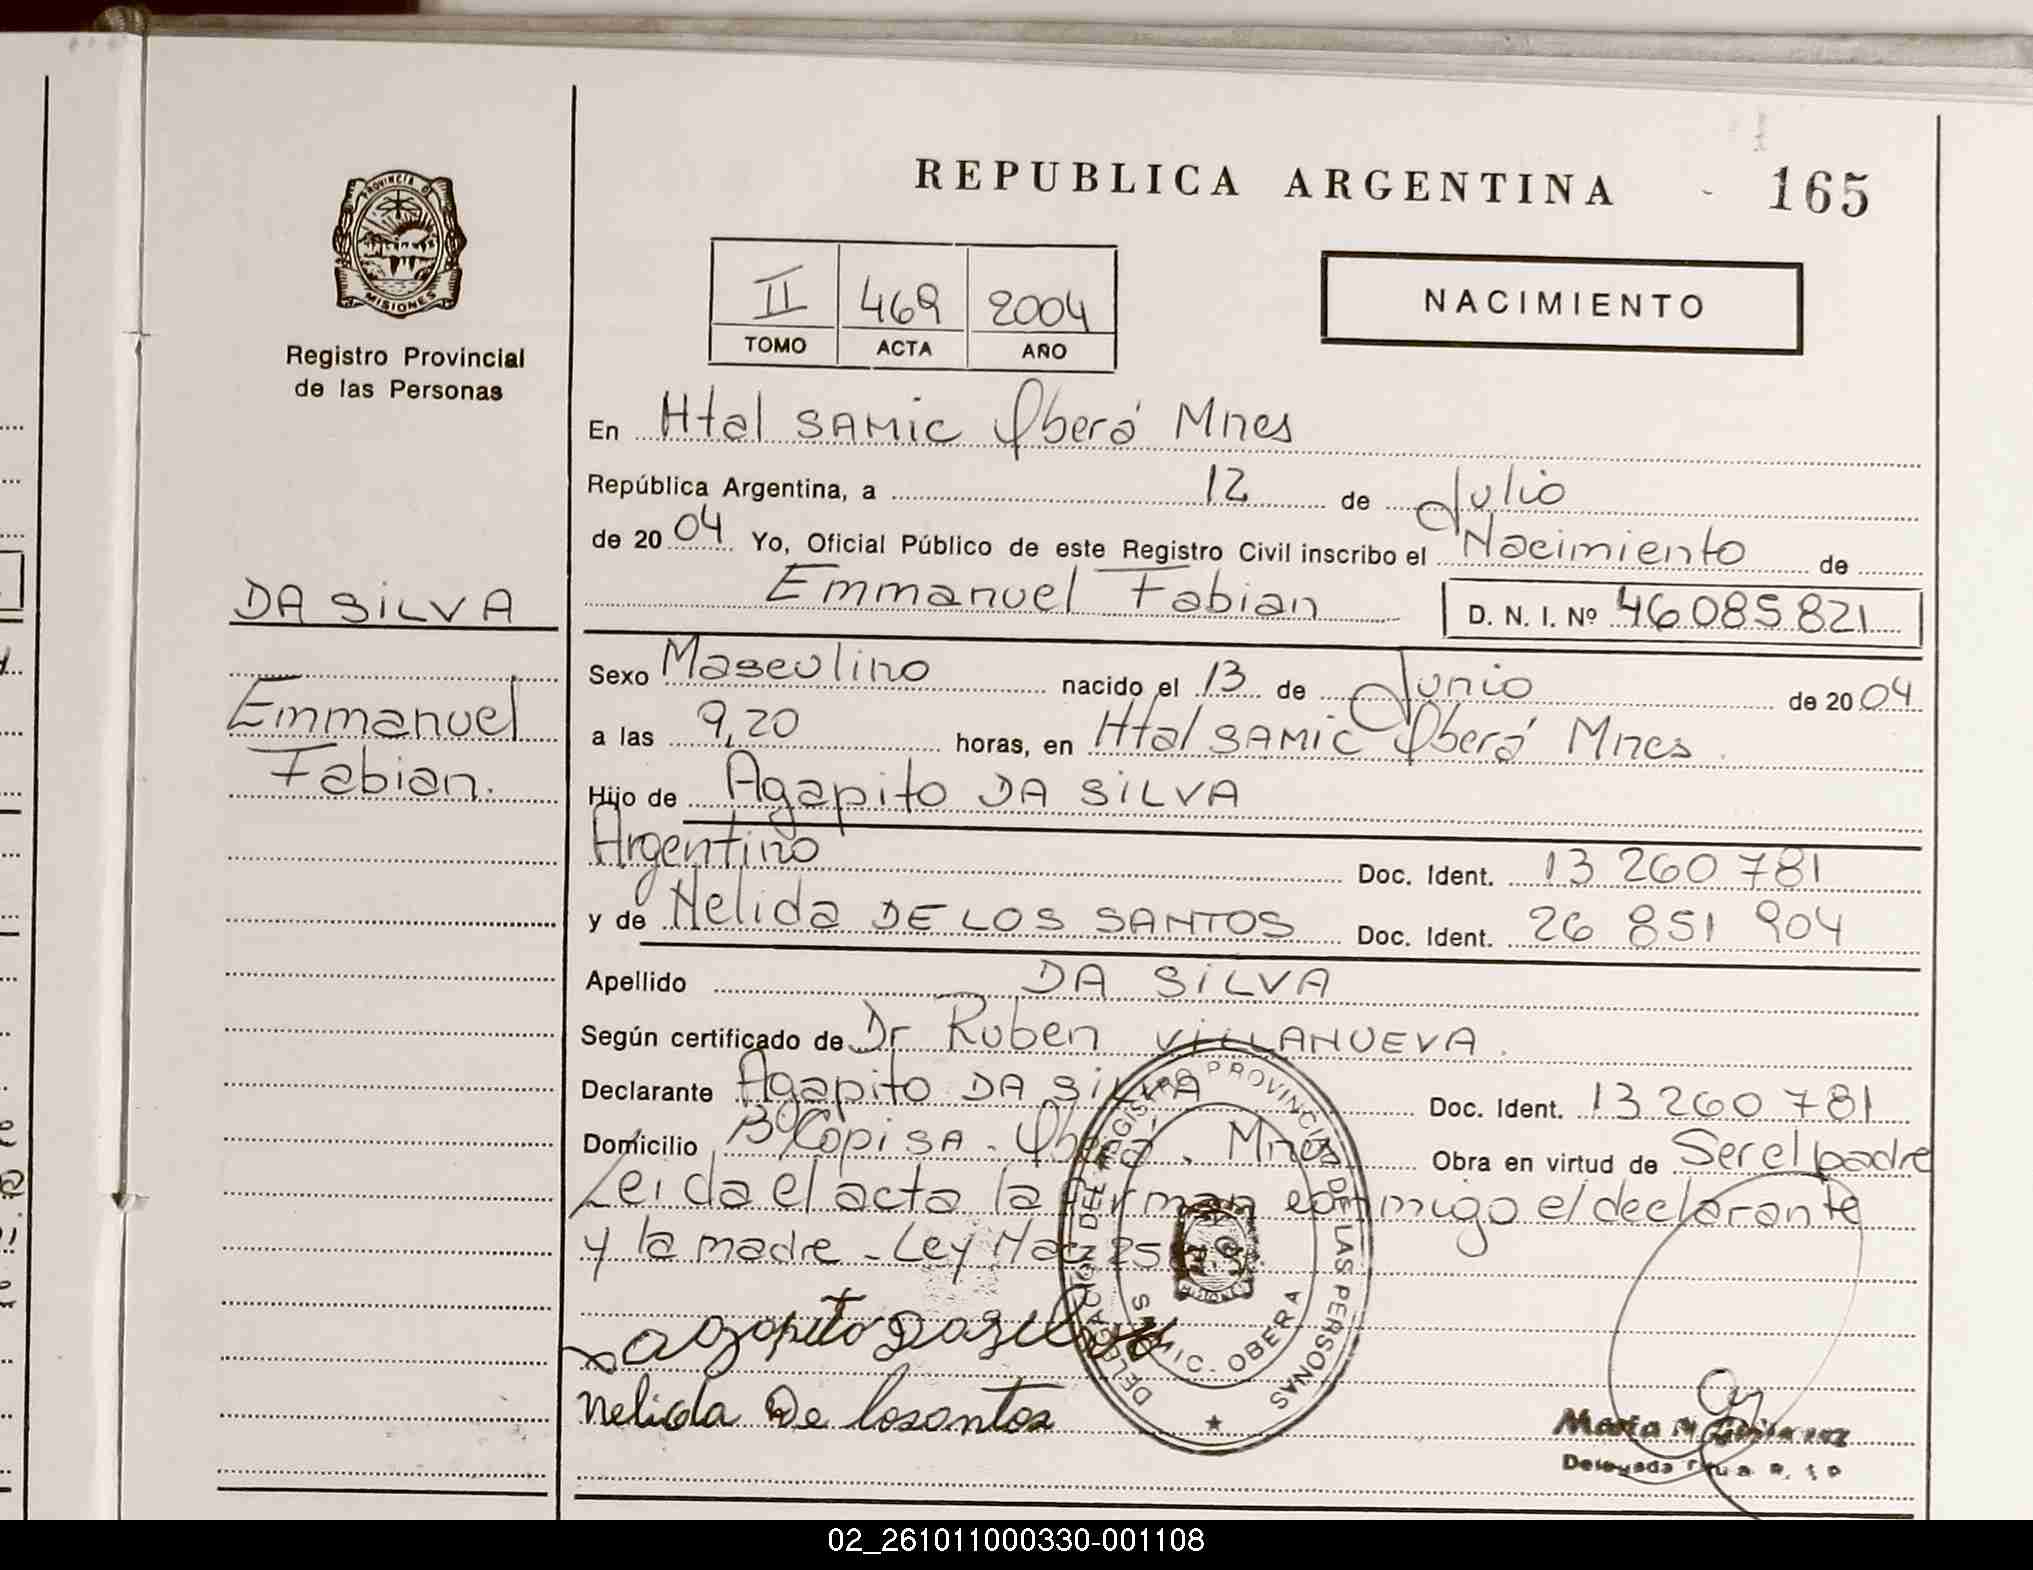 REPUBLICA ARGENTINA
165
PROVINCIA D
MISIONES
Registro Provincial
de las Personas
II 469 2004
TOMO ACTA AÑO
NACIMIENTO
En Htal SAMIC Oberá Mnes
República Argentina, a 12 de Julio
de 2004 Yo, Oficial Público de este Registro Civil inscribo el Nacimiento de
Emmanuel Fabian D. N. I. Nº 46 085 821
DA SILVA
Emmanuel
Fabian.
Sexo Masculino nacido el 13 de Junio de 2004
a las 9,20 horas, en Htal SAMIC Oberá Mnes.
Hijo de Agapito DA SILVA
Argentino Doc. Ident. 13 260 781
y de Nelida DE LOS SANTOS Doc. Ident. 26 851 904
Apellido DA SILVA
Según certificado de Dr Ruben VILLANUEVA.
Declarante Agapito DA SILVA Doc. Ident. 13 260 781
Domicilio Bº Copisa - Oberá. Mnes Obra en virtud de Ser el padre
Leida el acta la firman conmigo el declarante
y la madre - Ley Nac 25
agapito Dasilva
nelida De losantos
DELEGACION DEL REGISTRO PROVINCIAL DE LAS PERSONAS
SAMIC. OBERA
Maria M
Delegada
02_261011000330-001108